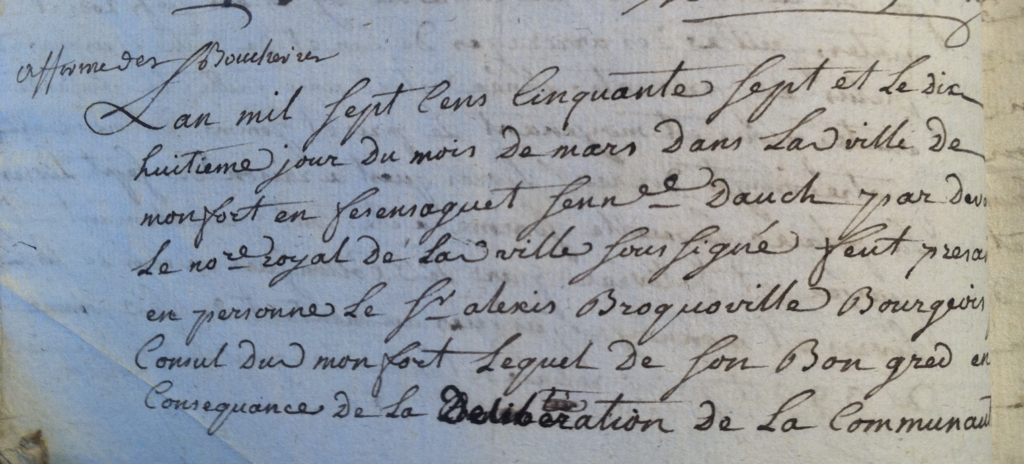 affermedes Boucheries
Lan mil sept Cens Cinquante sept et Le dix
huitieme jour du mois de mars Dans La ville de
monfort en fesensaguet senn^ee Dauch par dev
Le no^re royal de La ville sous signé feut presa
en personne Le S^r alexis Broquoville Bourgeois
Consul dud monfort Lequel de son Bon gred en
Consequance de La Deliberation de La Communaut